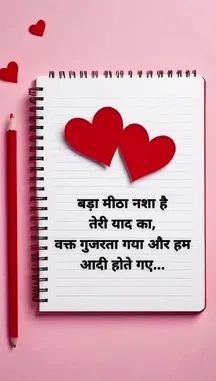 बड़ा मीठा नशा है
तेरी याद का,
वक्त गुजरता गया और हम
आदी होते गए...